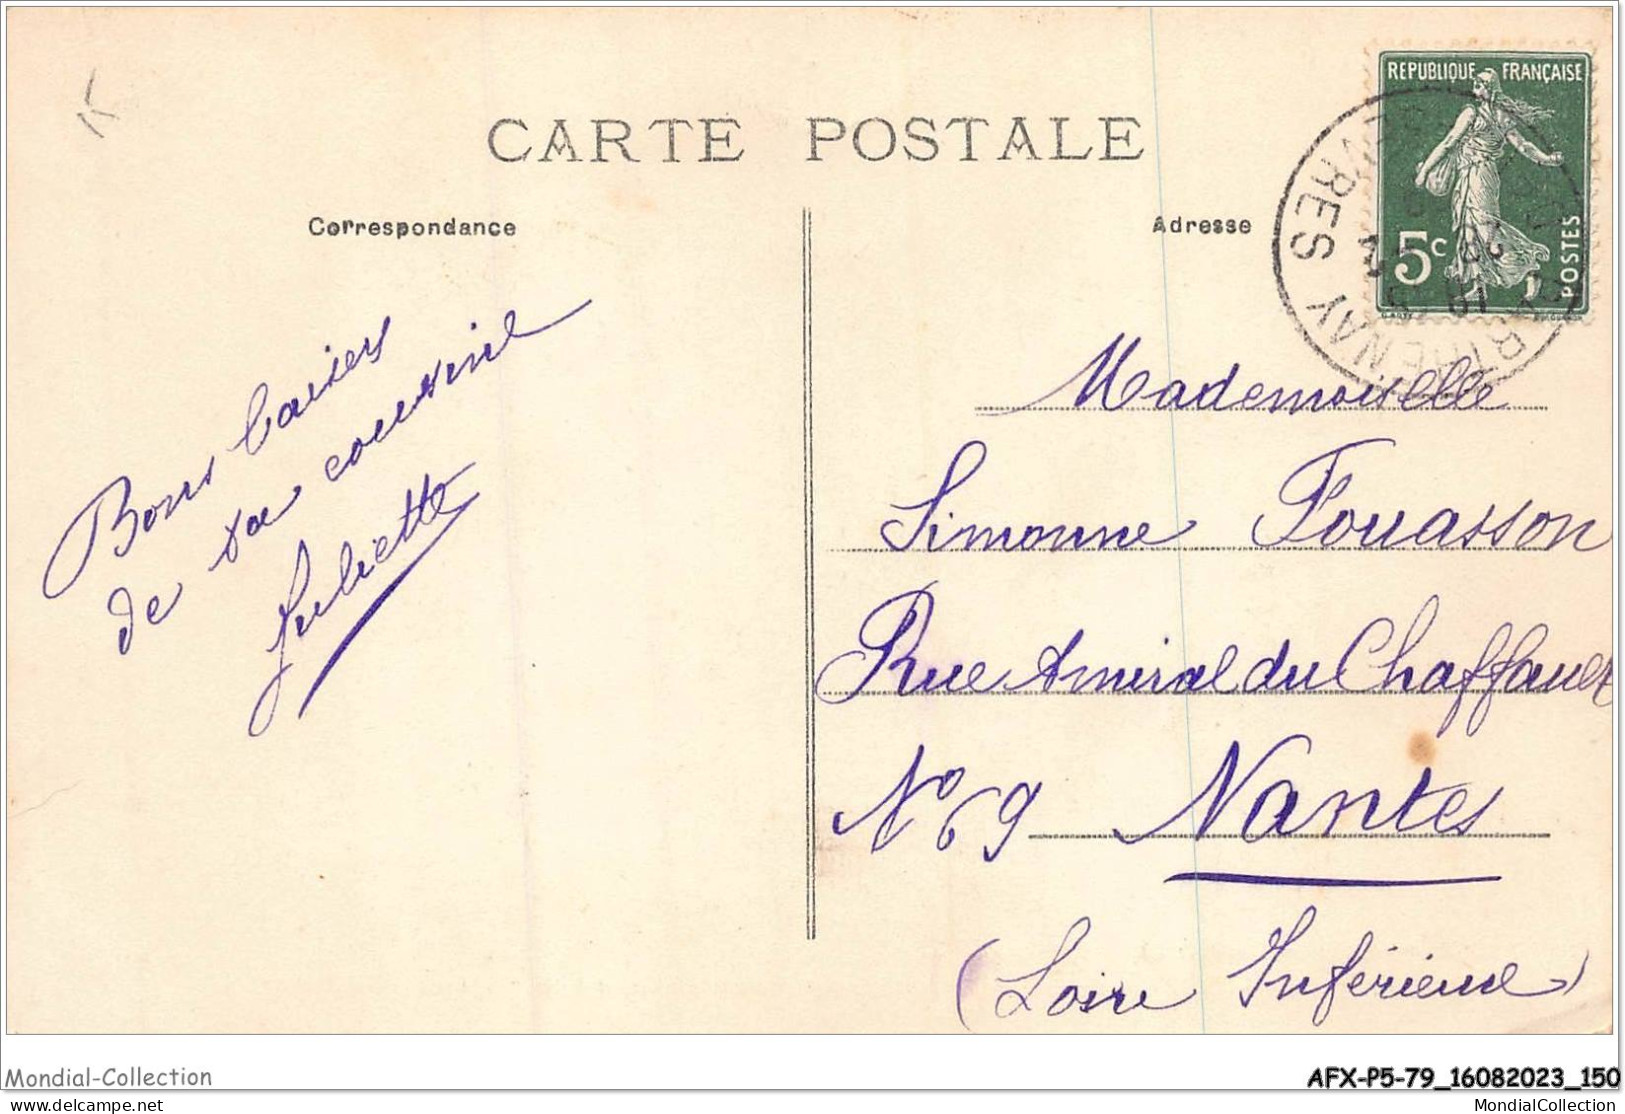 CARTE POSTALE
Correspondance
Bons baisers
de ta cousine
Juliette
Adresse
REPUBLIQUE FRANÇAISE
5c
POSTES
PARTHENAY
SEVRES
Mademoiselle
Simonne Fouasson
Rue Amiral du Chaffault
N° 69 Nantes
(Loire Inférieure)
Mondial-Collection
AFX-P5-79_16082023_150
delcampe.net
MondialCollection